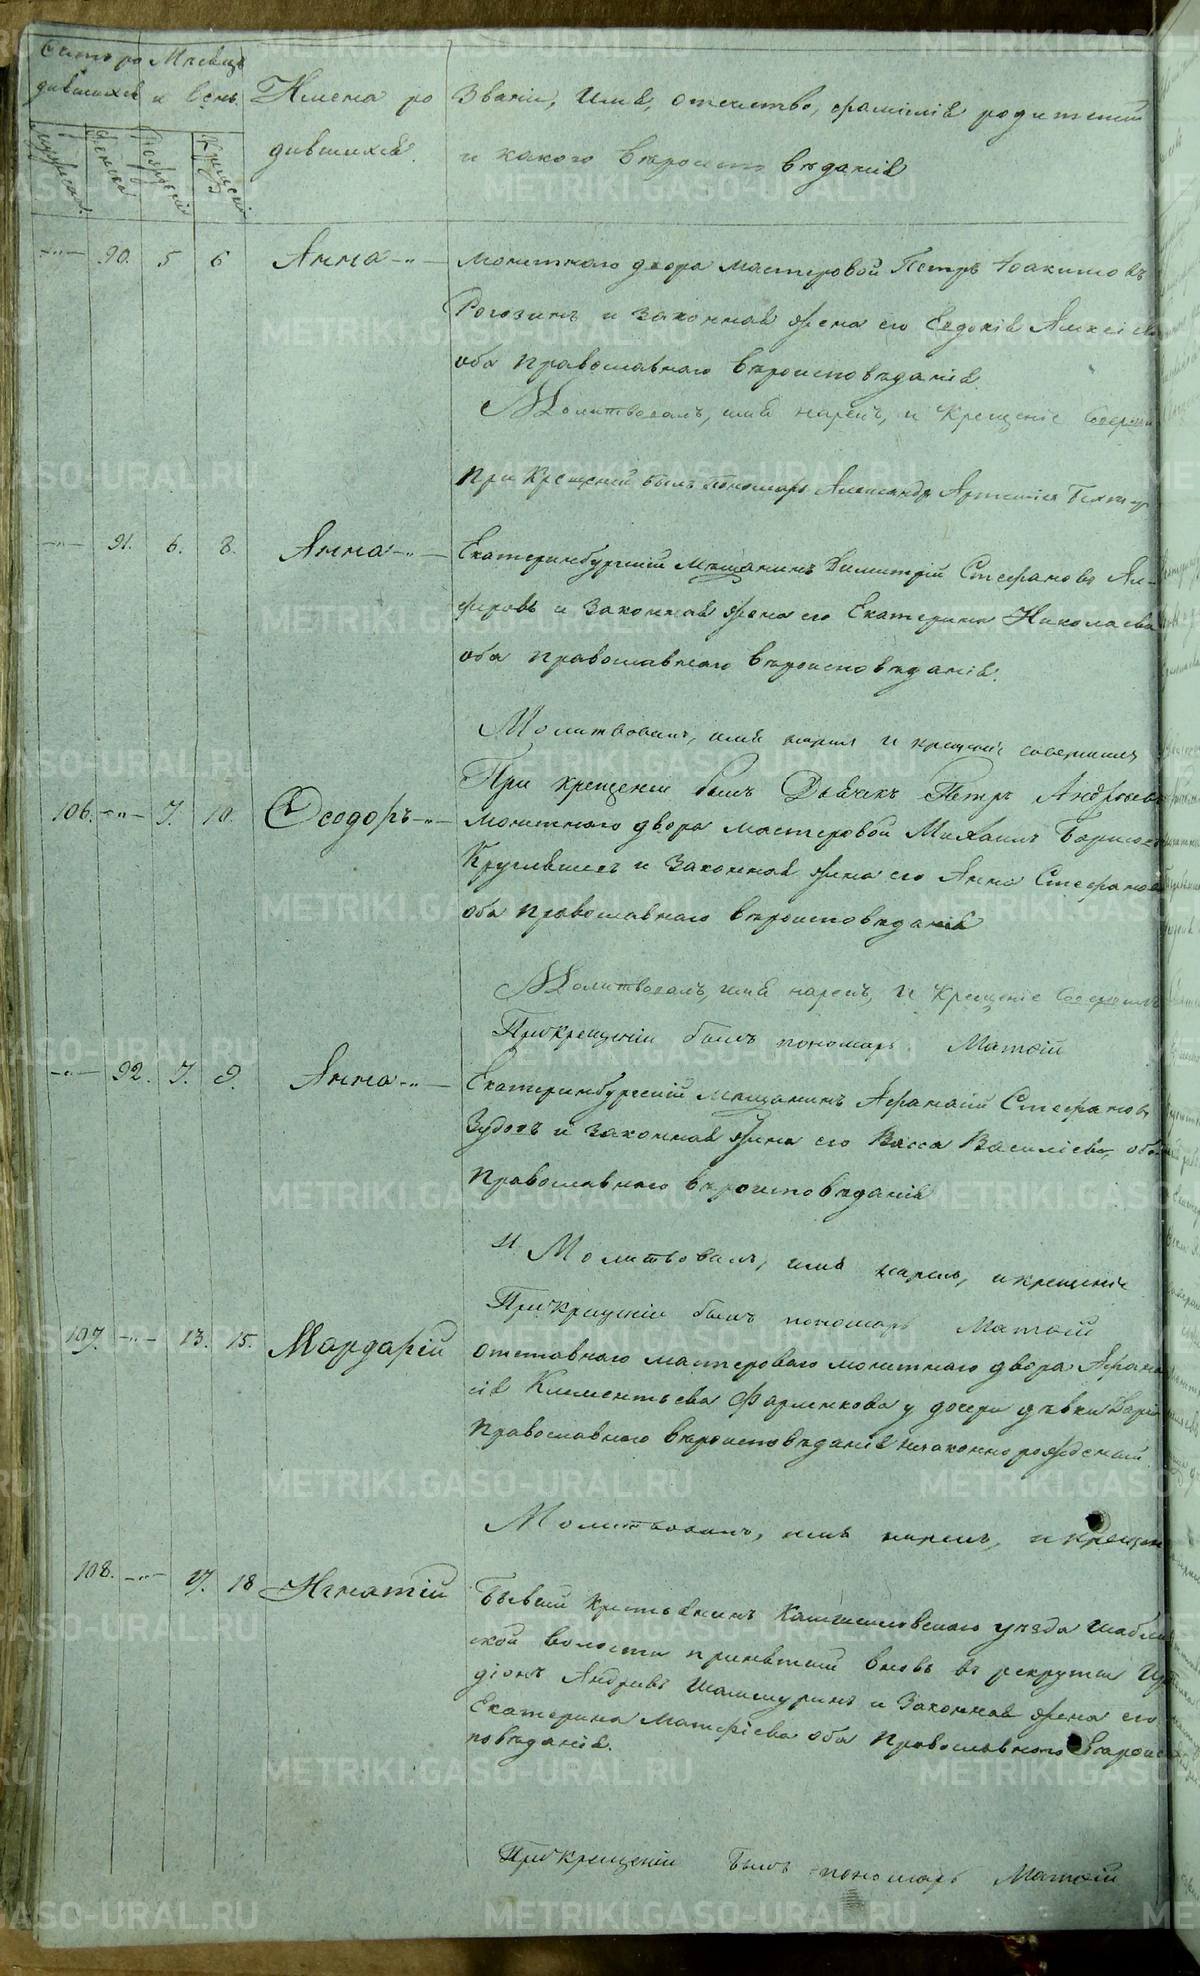 Счетъ ро Месяцъ
дившихся и День.
Имена ро
дившихся.
Званіе, Имя, отечество, фамилія родителей
и какого вероиспо веданія
мужеска. женска рожденія Крещенія
—"— 90. 5 6 Анна —"— Монетнаго двора мастеровой Петръ Іоакимовъ
Рогозинъ и законная жена его Евдокія Алексіева
оба православнаго вероисповеданія.
Молитвовалъ, имя нарекъ, и Крещеніе Соверши
При Крещеніи былъ пономарь Александръ Артемiевъ
—"— 91. 6. 8. Анна —"— Екатеринбургскій мещанинъ Димитрій Стефановъ Ал-
феровъ и законная жена его Екатерина Николаева
оба православнаго вероисповеданія.
Молитвовалъ, имя нарекъ и крещеніе совершилъ
При крещеніи былъ Дьячекъ Петръ Андреевъ
106. —"— 7. 10. Ѳеодоръ —"— Монетнаго двора мастеровой Михаилъ Борисовъ
и законная жена его Анна Стефанова
оба православнаго вероисповеданія
Молитвовалъ, имя нарекъ, и Крещеніе Совершилъ
При крещеніи былъ пономарь Матѳій
—"— 92. 7. 9. Анна —"— Екатеринбургскій мещанинъ Афанасій Стефановъ
Зубовъ и законная жена его Васса Василіева, оба
Православнаго вероисповеданія
Молитвовалъ, имя нарекъ, и крещеніе
При крещеніи былъ пономарь Матѳій
107. —"— 13. 15. Мардарій Отставнаго мастероваго монетнаго двора Афана
сія Климентьева Фарленкова у дочери девки Дарьи
Православнаго вероисповеданія незаконнорожденный
Молитвовалъ, имя нарекъ, и крещен
108. —"— 17. 18 Игнатій Бывшій крестьянинъ Камышловскаго уезда Шабли
ской волости принятый вновь въ рекруты
діонъ Андреевъ Шамшуринъ и законная жена его
Екатерина Матфіева оба Православнаго вероиспо
поведанія.
При крещеніи былъ пономарь Матѳій
METRIKI.GASO-URAL.RU